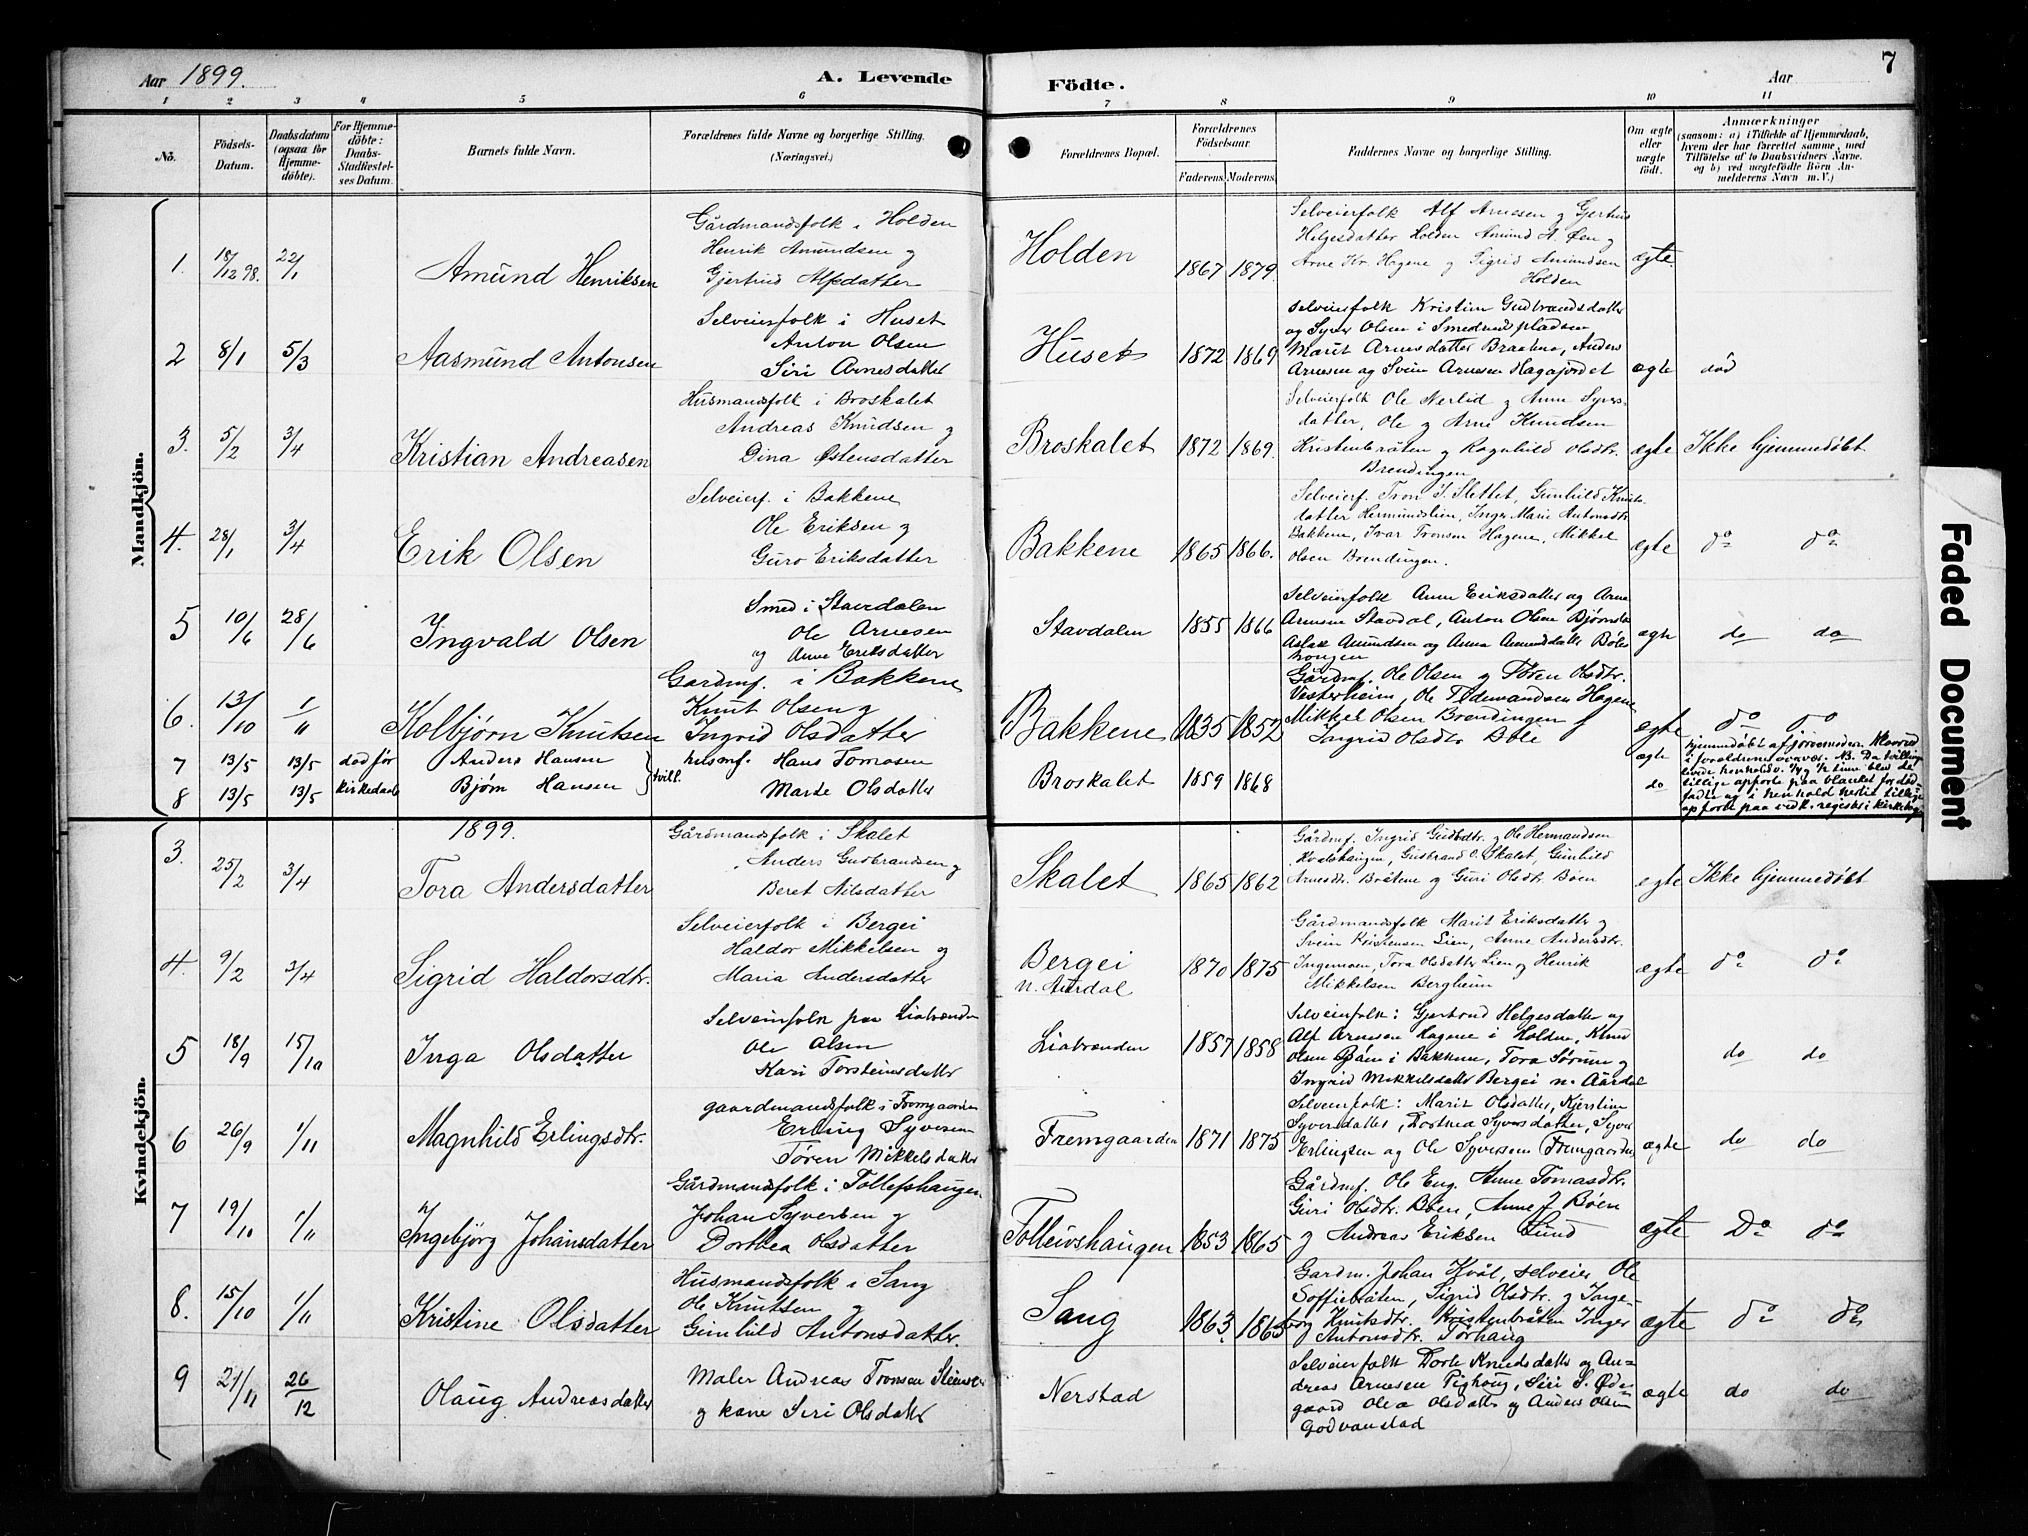 Aar 1899.
A. Levende Födte.
Aar
7
1 2 3 4 5 6 7 8 9 10 11
No.
Födsels-Datum.
Daabsdatum (ogsaa for Hjemmedöbte).
For Hjemmedöbte: Daabs-Stadfæstelses Datum.
Barnets fulde Navn.
Forældrenes fulde Navne og borgerlige Stilling. (Næringsvei.)
Forældrenes Bopæl.
Forældrenes Födselsaar.
Faderens. Moderens.
Faddernes Navne og borgerlige Stilling.
Om ægte eller uægte födt.
Anmærkninger
(saasom: a) i Tilfælde af Hjemmedaab, hvem der har forrettet samme, med Tilföielse af to Daabsvidners Navne, og b) ved uægtefödte Börn Anmelderens Navn m. V.)
Mandkjön.
1. 18/12 98. 22/1 Amund Henriksen
Gårdmandsfolk i Holden
Henrik Amundsen og
Gjertrud Alfsdatter
Holden 1867 1879.
Selveierfolk Alf Arnesen og Gjertrud
Helgesdatter Holden Amund A. Øen og
Arne Kr. Hagene og Sigrid Amundsen
Holden
ægte.
2 8/1 5/3 Aasmund Antonsen
Selveierfolk i Huset
Anton Olsen
Siri Arnesdatter
Huset 1872 1869
Selveierfolk Kristine Gudbrandsdatter
og Syver Olsen i Smedmedpladsen
Marit Arnesdatter Braatene, Anders
Arnesen og Svein Arnesen Hagajordet
ægte død
3. 5/2 3/4 Kristian Andreasen
Husmandsfolk i Broskalet
Andreas Knudsen og
Dina Østensdatter
Broskalet 1872 1869.
Selveierfolk Ole Nerlid og Anne Syvers-
datter, Ole og Arne Knudsen
Kristenbråten og Ragnhild Olsdtr.
Brendingen
ægte Ikke hjemmedøbt
4. 28/1 3/4 Erik Olsen
Selveierf. i Bakkene
Ole Eriksen og
Guro Eriksdatter
Bakkene 1865 1866.
Selveierf. Tron I. Slettet, Gunhild Knuts-
datter Hermundslien, Inger Marie Antonsdtr.
Bakkene, Ivar Tronsen Hagene, Mikkel
Olsen Brendingen.
ægte do do
5 10/6 28/6 Ingvald Olsen
Smed i Stavdalen
Ole Arnesen
og Anne Eriksdatter
Stavdalen 1855 1866
Selveierfolk Anne Eriksdatter og Arne
Arnesen Stavdal, Anton Olsen
Aslak Amundsen og Anna Amundsdatter
ægte do do
6. 13/10 1/11 Kolbjørn Knutsen
Gardmf. i Bakkene
Knut Olsen og
Ingrid Olsdatter
Bakkene 1835 1852
Gårdmf. Ole Olsen og Tören Olsdtr.
Vesterheim, Ole Tidemandsen Hagene
Mikkel Olsen Brendingen
Ingrid Olsdtr Böle
ægte do do
7 13/5 13/5 død før Anders Hansen
husmf. Hans Tomasen
Broskalet 1859 1868
ægte
8 13/5 13/5 kirkedaab Bjørn Hansen tvill.
Marte Olsdatter
do
Kvindekjön.
1899.
3. 25/2 3/4 Tora Andersdatter
Gårdmandsfolk i Skalet
Anders Gudbrandsen og
Beret Nilsdatter
Skalet 1865 1862
Gårdmf. Ingrid Gudbdtr. og Ole Hermandsen
Kvalshaugen, Gudbrand O. Skalet, Gunhild
Arnesdtr. Bråtene og Guri Olsdtr Bøen
ægte Ikke hjemmedøbt
4. 9/2 3/4 Sigrid Haldorsdtr.
Selveierfolk i Bergei
Haldor Mikkelsen og
Maria Andersdatter
Bergei
n. Aurdal 1870 1875
Gårdmandsfolk Marit Eriksdatter og
Svein Kristensen Lien, Anne Andersdtr.
Ingemoen, Tora Olsdatter Lien og Henrik
Mikkelsen Bergheim
ægte do do
5 18/9 15/10 Inga Olsdatter
Selveirfolk paa Liabrænden
Ole Olsen
Kari Torsteinsdatter
Liabrænden 1857 1858
Selveierfolk: Gjertrud Helgesdatter og
Alf Arnesen Hagene i Holden, Knud
Olsen i Bakkene, Tora og
Ingrid Mikkelsdatter Bergei n. Aurdal
do do
6 26/9 1/11 Magnhild Erlingsdtr.
gaardmandsfolk i Fremgaarden
Erling Syversen
Tøren Mikkelsdatter
Fremgaarden 1871 1875
Selveierfolk: Marit Olsdatter, Kjerstine
Syversdatter, Dorthea Syversdatter, Syver
Erlingsen og Ole Syversen Fremgaarden
ægte do do
7 19/10 1/11 Ingebjørg Johansdatter
Gårdmandsfolk i Tollefshaugen
Johan Syversen og
Dorthea Olsdatter
Tolleivshaugen 1853 1865
Gårdmf. Ole Eng. Anne Tomasdtr.
Guri Olsdtr. Bøen, Anne J Bøen
og Andreas Eriksen Lund
ægte Do do
8. 15/10 1/11 Kristine Olsdatter
Husmandsfolk i Sang
Ole Knutsen og
Gunhild Antonsdatter.
Sang 1863 1865
Gardm. Johan Kvål, selveier Ole
Soffiebråten, Sigrid Olsdtr. og Inge-
borg Knutsdtr. Kristenbråten Inger
Antonsdtr. Torhaug
ægte do do
9 21/11 26/12 Olaug Andreasdatter
Maler Andreas Tronsen
og kone Siri Olsdatter
Nerstad
Selveierfolk Dorte Knudsdatter og An-
dreas Arnesen, Siri S. Øde-
gaard Olea Olsdatter og Anders Olsen
Godvanstad
ægte do do
Faded Document